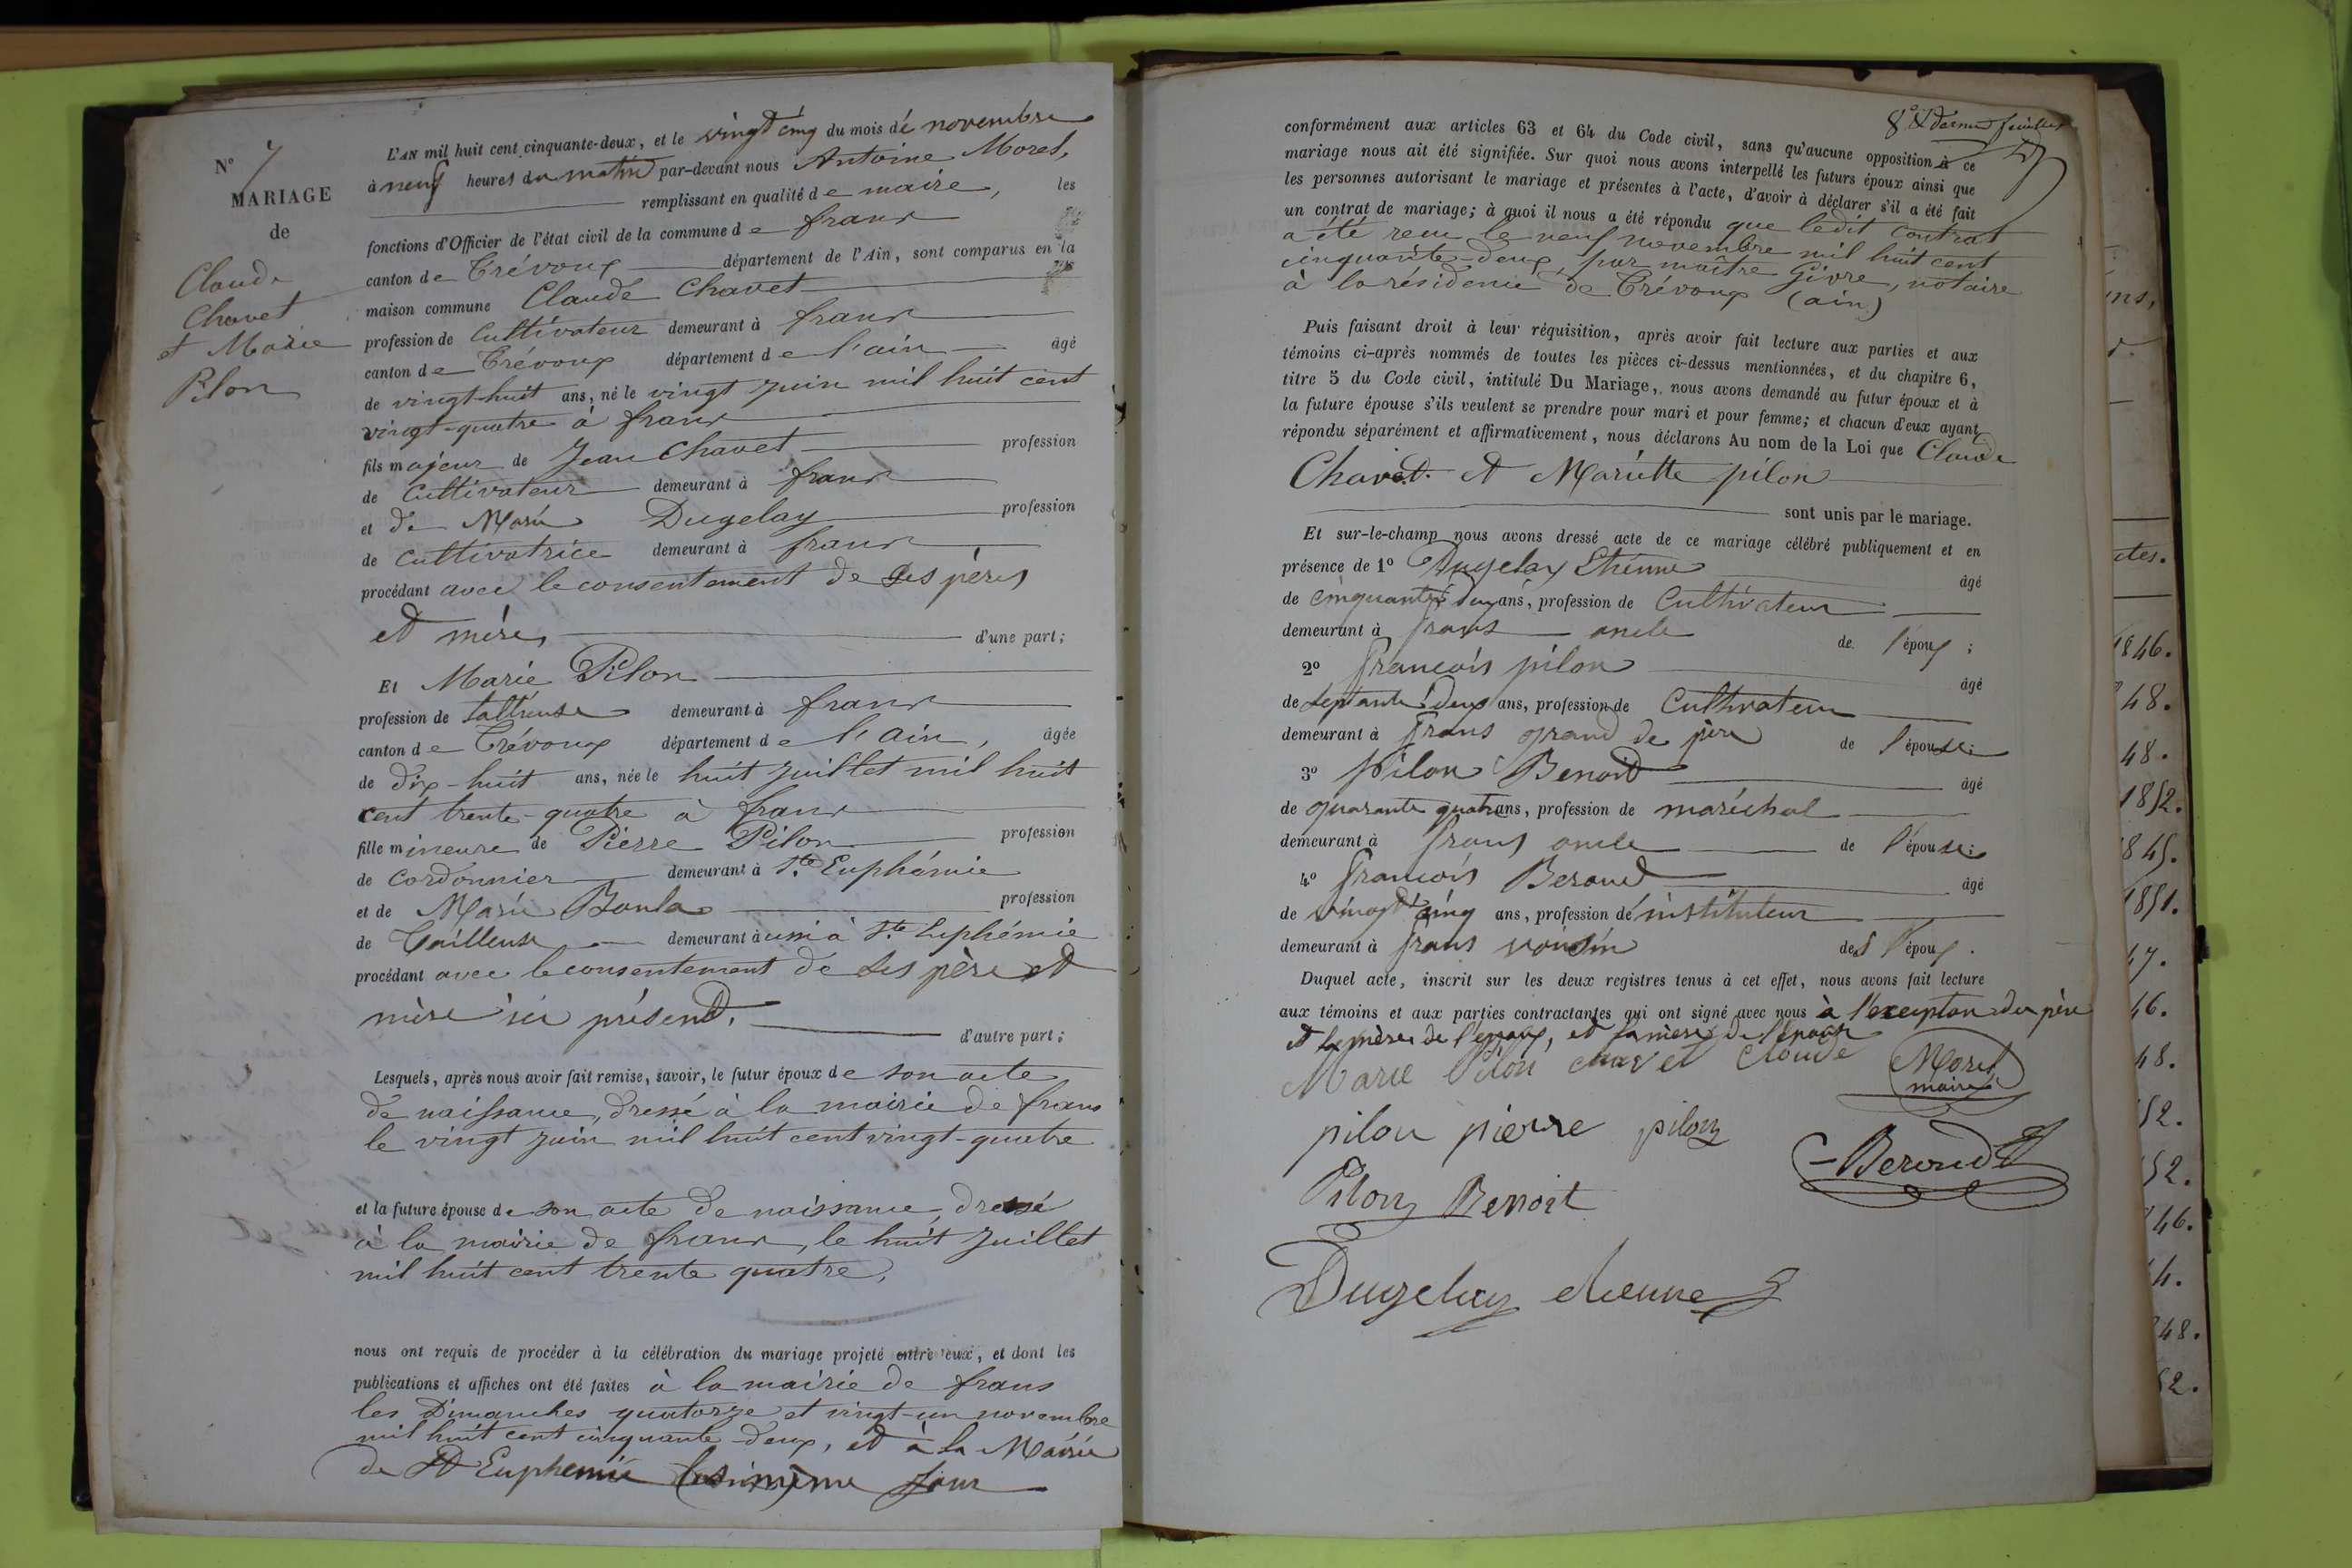 N° 7
MARIAGE
de
Claude
Chavet
et Marie
Pilon
L'AN mil huit cent cinquante-deux, et le vingt cinq du mois de novembre
à neuf heures du matin par-devant nous Antoine Morel,
remplissant en qualité de maire, les
fonctions d'Officier de l'état civil de la commune de frans
canton de Trévoux département de l'Ain, sont comparus en la
maison commune Claude Chavet
profession de Cultivateur demeurant à frans
canton de Trévoux département de l'ain âgé
de vingt-huit ans, né le vingt juin mil huit cent
vingt-quatre à frans
fils majeur de Jean Chavet profession
de Cultivateur demeurant à frans
et de Marie Dugelay profession
de cultivatrice demeurant à frans
procédant avec le consentement de ses pères
et mère, d'une part;
Et Marie Pilon
profession de demeurant à frans
canton de Trévoux département de l'Ain, âgée
de dix-huit ans, née le huit juillet mil huit
cent trente-quatre à frans
fille mineure de Pierre Pilon profession
de Cordonnier demeurant à Ste Euphémie
et de Marie Boula profession
de Tailleuse demeurant aussi à Ste Euphémie
procédant avec le consentement de ses père et
mère ici présent. d'autre part;
Lesquels, après nous avoir fait remise, savoir, le futur époux de son acte
de naissance, dressé à la mairie de frans
le vingt juin mil huit cent vingt-quatre
et la future épouse de son acte de naissance, dressé
à la mairie de frans, le huit juillet
mil huit cent trente quatre,
nous ont requis de procéder à la célébration du mariage projeté entre eux, et dont les
publications et affiches ont été faites à la mairie de frans
les Dimanches quatorze et vingt-un novembre
mil huit cent cinquante-deux, et à la Mairie
de St Euphemie les même jour
8e & dernier feuillet
conformément aux articles 63 et 64 du Code civil, sans qu'aucune opposition à ce
mariage nous ait été signifiée. Sur quoi nous avons interpellé les futurs époux ainsi que
les personnes autorisant le mariage et présentes à l'acte, d'avoir à déclarer s'il a été fait
un contrat de mariage; à quoi il nous a été répondu que ledit contrat
a été recu le neuf novembre mil huit cent
cinquante-deux, par maître Givre, notaire
à la résidence de Trévoux (ain)
Puis faisant droit à leur réquisition, après avoir fait lecture aux parties et aux
témoins ci-après nommés de toutes les pièces ci-dessus mentionnées, et du chapitre 6,
titre 5 du Code civil, intitulé Du Mariage, nous avons demandé au futur époux et à
la future épouse s'ils veulent se prendre pour mari et pour femme; et chacun d'eux ayant
répondu séparément et affirmativement, nous déclarons Au nom de la Loi que Claude
Chavet et Mariette pilon
sont unis par le mariage.
Et sur-le-champ nous avons dressé acte de ce mariage célébré publiquement et en
présence de 1° Dugelay Etienne âgé
de cinquante deux ans, profession de Cultivateur
demeurant à frans oncle de l'époux;
2° François pilon âgé
de septante deux ans, profession de Cultivateur
demeurant à frans grand de père de l'épouse;
3° Pilon Benoit âgé
de quarante quatre ans, profession de maréchal
demeurant à frans oncle de l'épouse;
4° François Beroud âgé
de vingt cinq ans, profession de instituteur
demeurant à frans voisin des l'époux.
Duquel acte, inscrit sur les deux registres tenus à cet effet, nous avons fait lecture
aux témoins et aux parties contractantes qui ont signé avec nous à l'exception du père
et la mère de l'époux, et la mère de l'épouse
Marie Pilon chavet Claude Morel
maire
pilon pierre pilon
Beroud
Pilon Benoit
Dugelay etienne
ins,
ites.
1846.
48.
48.
1852.
1845.
1851.
47.
46.
48.
52.
52.
46.
48.
52.